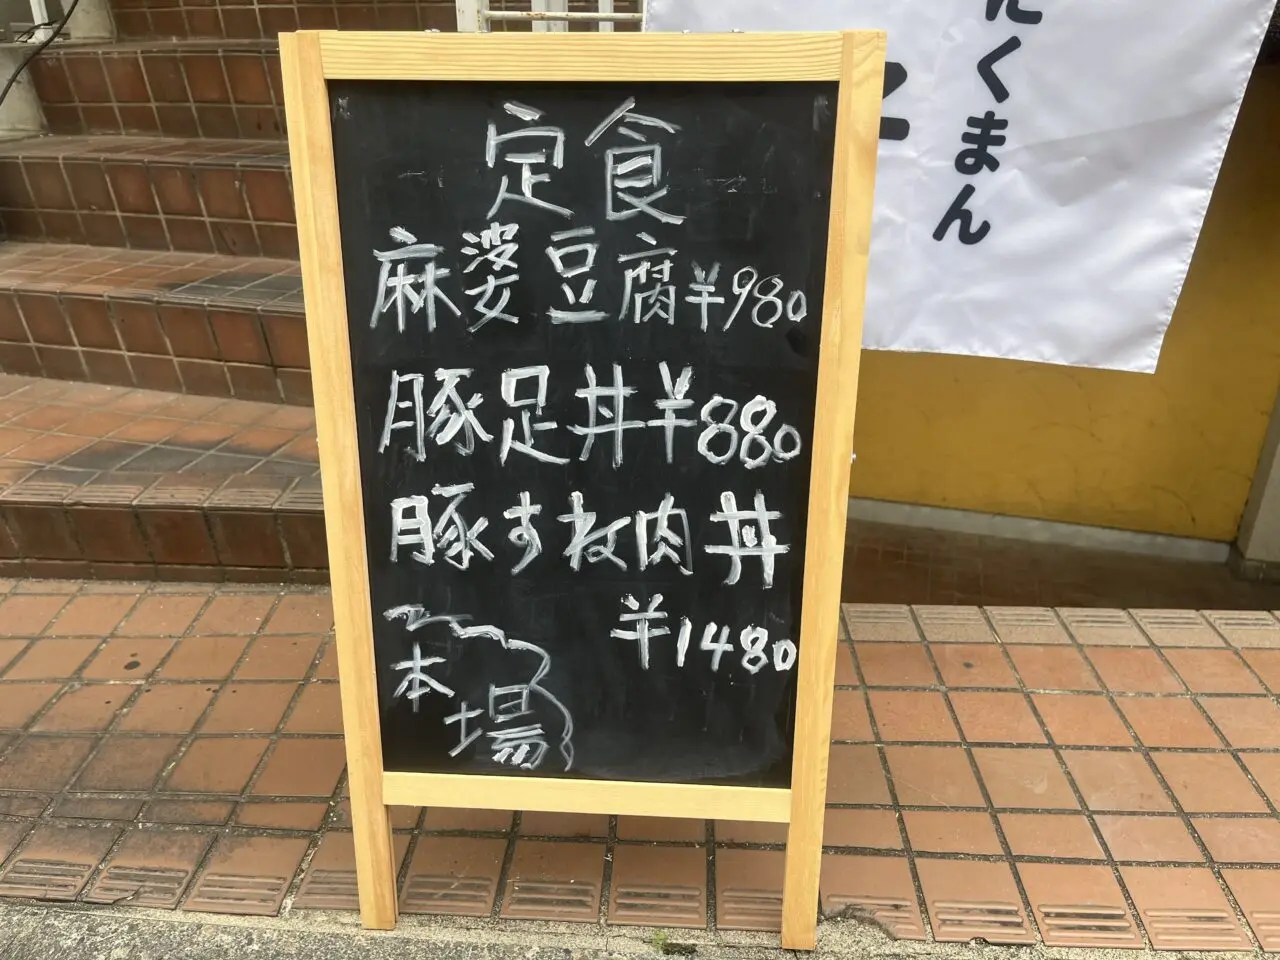 定食
麻婆豆腐¥980
豚足丼¥880
豚すね肉丼
¥1480
本場
くまん